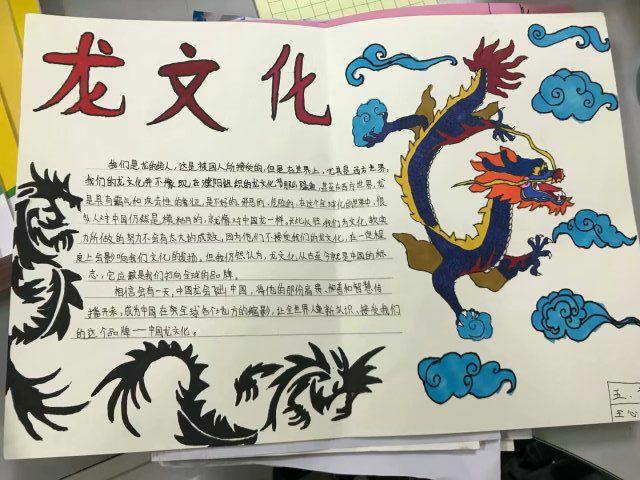 龙文化
我们是龙的传人，这是被国人所接受的，但是在世界上，尤其是西方世界，
我们的龙文化并不像 在 龙文化 甚至在西方世界，龙
是具有霸气和攻击性的象征，是不好的，邪恶的，危险的，在这个全球化的世界中，很
多人对中国仍然是模糊的，就像对中国龙一样，长此以往我们为文化软实
力所做的努力不会有太大的成效，因为他们不接受我们的龙文化，在一定程
度上会影响我们文化的 但我仍然认为，龙文化从古至今就是中国的标
志，它应该是我们打向全球的品牌。
相信会有一天，中国龙会 出中国，将他的那份 和智慧传
播开来，成为中国在央全球各个地方的缩影，让全世界人重新认识、接受我们
的这个品牌——中国龙文化。
五.
至心